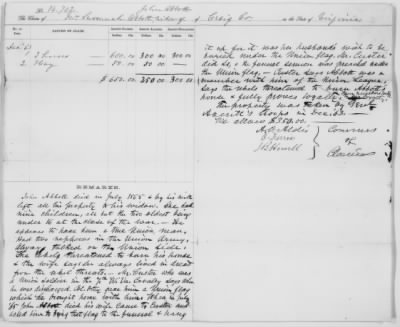 No. 14,757 John Abbott
The Claim of Mrs Savannah Abbott widow of Craig Co in the State of Virginia
NATURE OF CLAIM.
Dec 63
2 Horses 600.00 300.00 300.00
2 Hay 80.00 50.00
$ 680.00 350.00 300
REMARKS.
John Abbott died in July 1865 & by his will
left all his property to his widow. She had
nine children, all but the two oldest being
under 16 at the close of the war. He
appears to have been a true Union man.
Had two nephews in the Union Army,
Always talked on the Union side.
The rebels threatened to burn his house
& the wife says she always lived in dread
from the rebel threats. Mr. Custer who was
a Union Soldier in the 7th W. Va Cavalry says when
he was discharged Col gave him a Union flag
which he brought home with him. When in July
1865 John Abbott died his wife came to Custer and
asked him to bring that flag to the funeral & hang
it up for it was her husbands wish to be
buried under the Union flag. Mr. Custer
did so, & the funeral sermon was preached under
the Union flag. Custer says Abbott was a
member with him of the Union League,
says the rebels threatened to burn Abbott's
house & fully proves loyalty.
The property was taken by Genl
Averill's troops in Dec. 63.
We allow $350.00.
A. O. Aldis
O. Ferriss
J. B. Howell
Commrs
of
Claims